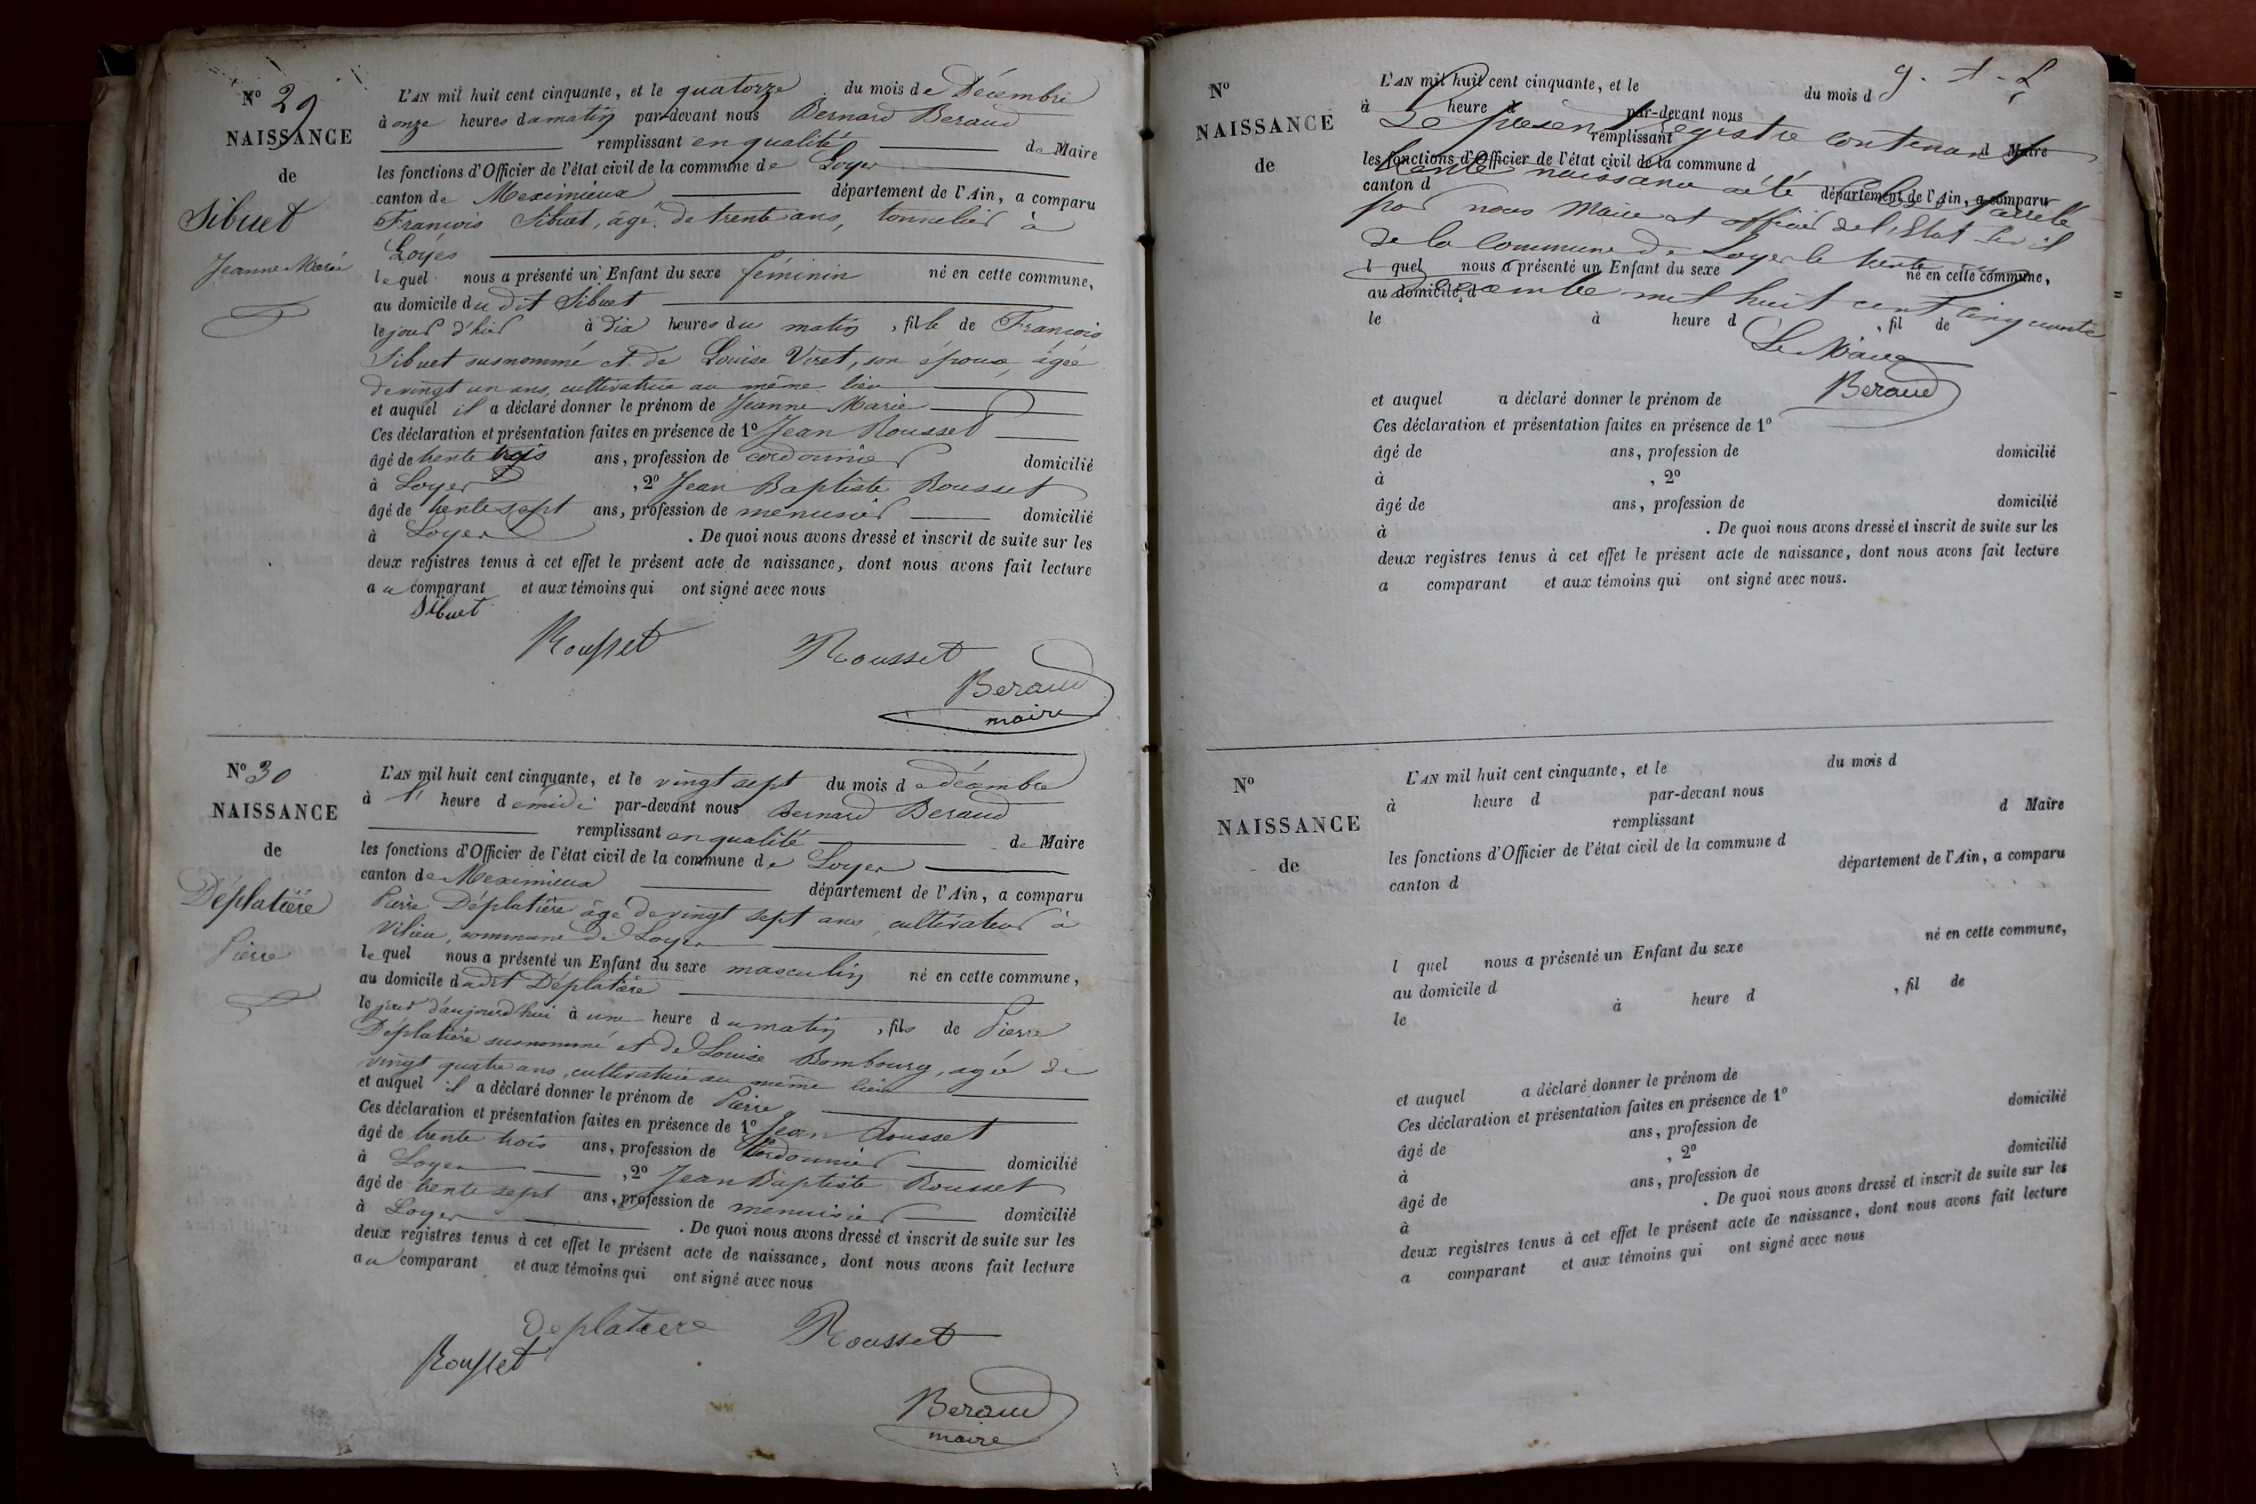 Nº 29
NAISSANCE
de
Sibuet
Jeanne Marie
L'AN mil huit cent cinquante, et le quatorze du mois de Décembre
à onze heures du matin par-devant nous Bernard Beraud
remplissant en qualité de Maire
les fonctions d'Officier de l'état civil de la commune de Loyes
canton de Meximieux département de l'Ain, a comparu
François Sibuet, âgé de trente ans, tonnelier à
Loyes
lequel nous a présenté un Enfant du sexe féminin né en cette commune,
au domicile du dit Sibuet
le jour d'hier à dix heures du matin, fille de François
Sibuet susnommé et de Louise Viret, son épouse, âgée
de vingt un ans, cultivatrice au même lieu
et auquel il a déclaré donner le prénom de Jeanne Marie
Ces déclaration et présentation faites en présence de 1º Jean Rousset
âgé de trente trois ans, profession de cordonnier domicilié
à Loyes, 2º Jean Baptiste Rousset
âgé de trente sept ans, profession de menuisier domicilié
à Loyes. De quoi nous avons dressé et inscrit de suite sur les
deux registres tenus à cet effet le présent acte de naissance, dont nous avons fait lecture
au comparant et aux témoins qui ont signé avec nous
Sibuet
Rousset Rousset
Beraud
maire
Nº 30
NAISSANCE
de
Déplatière
Pierre
L'AN mil huit cent cinquante, et le vingt sept du mois de décembre
à l' heure de midi par-devant nous Bernard Beraud
remplissant en qualité de Maire
les fonctions d'Officier de l'état civil de la commune de Loyes
canton de Meximieux département de l'Ain, a comparu
Pierre Déplatière âgé de vingt sept ans, cultivateur à
Vilieu, commune de Loyes
lequel nous a présenté un Enfant du sexe masculin né en cette commune,
au domicile dudit Déplatière
le jour d'aujourd'hui à une heure du matin, fils de Pierre
Déplatière susnommé et de Louise Bombourg, agée de
vingt quatre ans, cultivatrice au même lieu
et auquel il a déclaré donner le prénom de Pierre
Ces déclaration et présentation faites en présence de 1º Jean Rousset
âgé de trente trois ans, profession de Cordonnier domicilié
à Loyes, 2º Jean Baptiste Rousset
âgé de trente sept ans, profession de menuisier domicilié
à Loyes. De quoi nous avons dressé et inscrit de suite sur les
deux registres tenus à cet effet le présent acte de naissance, dont nous avons fait lecture
au comparant et aux témoins qui ont signé avec nous
Deplatiere Rousset
Rousset
Beraud
maire
Nº
NAISSANCE
de
L'AN mil huit cent cinquante, et le du mois d
à heure d par-devant nous
Le présent registre contenant
remplissant d Maire
les fonctions d'Officier de l'état civil de la commune d
trente naissance a été Clos & arrêté
canton d département de l'Ain, a comparu
par nous Maire et officier de l'Etat Civil
de la Commune de Loyes le trente un
l quel nous a présenté un Enfant du sexe né en cette commune,
au domicile d
Décembre mil huit cent cinquante
le à heure d , fil de
Le Maire
Beraud
et auquel a déclaré donner le prénom de
Ces déclaration et présentation faites en présence de 1º
âgé de ans, profession de domicilié
à , 2º
âgé de ans, profession de domicilié
à . De quoi nous avons dressé et inscrit de suite sur les
deux registres tenus à cet effet le présent acte de naissance, dont nous avons fait lecture
a comparant et aux témoins qui ont signé avec nous.
Nº
NAISSANCE
de
L'AN mil huit cent cinquante, et le du mois d
à heure d par-devant nous
remplissant d Maire
les fonctions d'Officier de l'état civil de la commune d
canton d département de l'Ain, a comparu
l quel nous a présenté un Enfant du sexe né en cette commune,
au domicile d
le à heure d , fil de
et auquel a déclaré donner le prénom de
Ces déclaration et présentation faites en présence de 1º
âgé de ans, profession de domicilié
à , 2º
âgé de ans, profession de domicilié
à . De quoi nous avons dressé et inscrit de suite sur les
deux registres tenus à cet effet le présent acte de naissance, dont nous avons fait lecture
a comparant et aux témoins qui ont signé avec nous